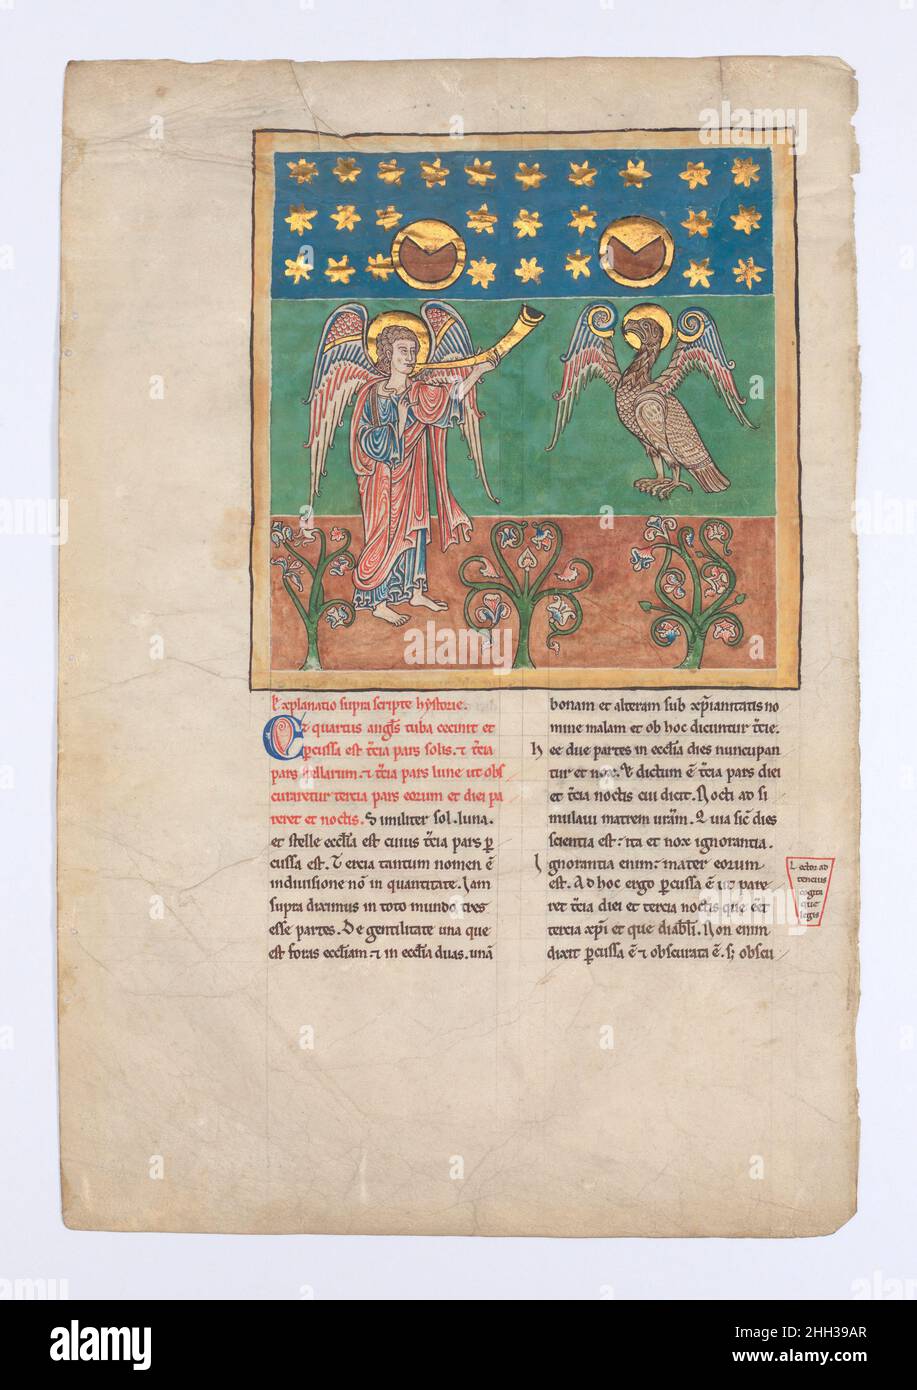 Explanatio supra scripte hystorie.
Et quartus angls tuba cecinit et
pcussa est tcia pars solis. et tcia
pars stellarum. et tcia pars lune ut obs
curaretur tercia pars eorum et diei pa
reret et noctis. Similiter sol. luna.
et stelle ecclia est cuius tcia pars p
cussa est. Tercia tantum nomen ē
indiuisione nō in quantitate. Iam
supra diximus in toto mundo tres
esse partes. De gentilitate una que
est foras eccliam. et in ecclia duas. unā
bonam et alteram sub xpianitatis no
mine malam et ob hoc dicuntur tcie.
hee due partes in ecclia dies nuncupan
tur et nox. Vt dictum ē tcia pars diei
et tcia noctis cui dicit. Nocti ad si
mulaui matrem uram. Quia sic dies
scientia est: ita et nox ignorantia.
Ignorantia enim: mater eorum
est. Ad hoc ergo pcussa ē ut pare
ret tcia diei et tercia noctis que
tercia xpi et que diabli. Non enim
dixit pcussa ē et obscurata ē. obscu
Lector ad
tencius
cogita
que
legis
alamy
Image ID: 2HH39AR
www.alamy.com